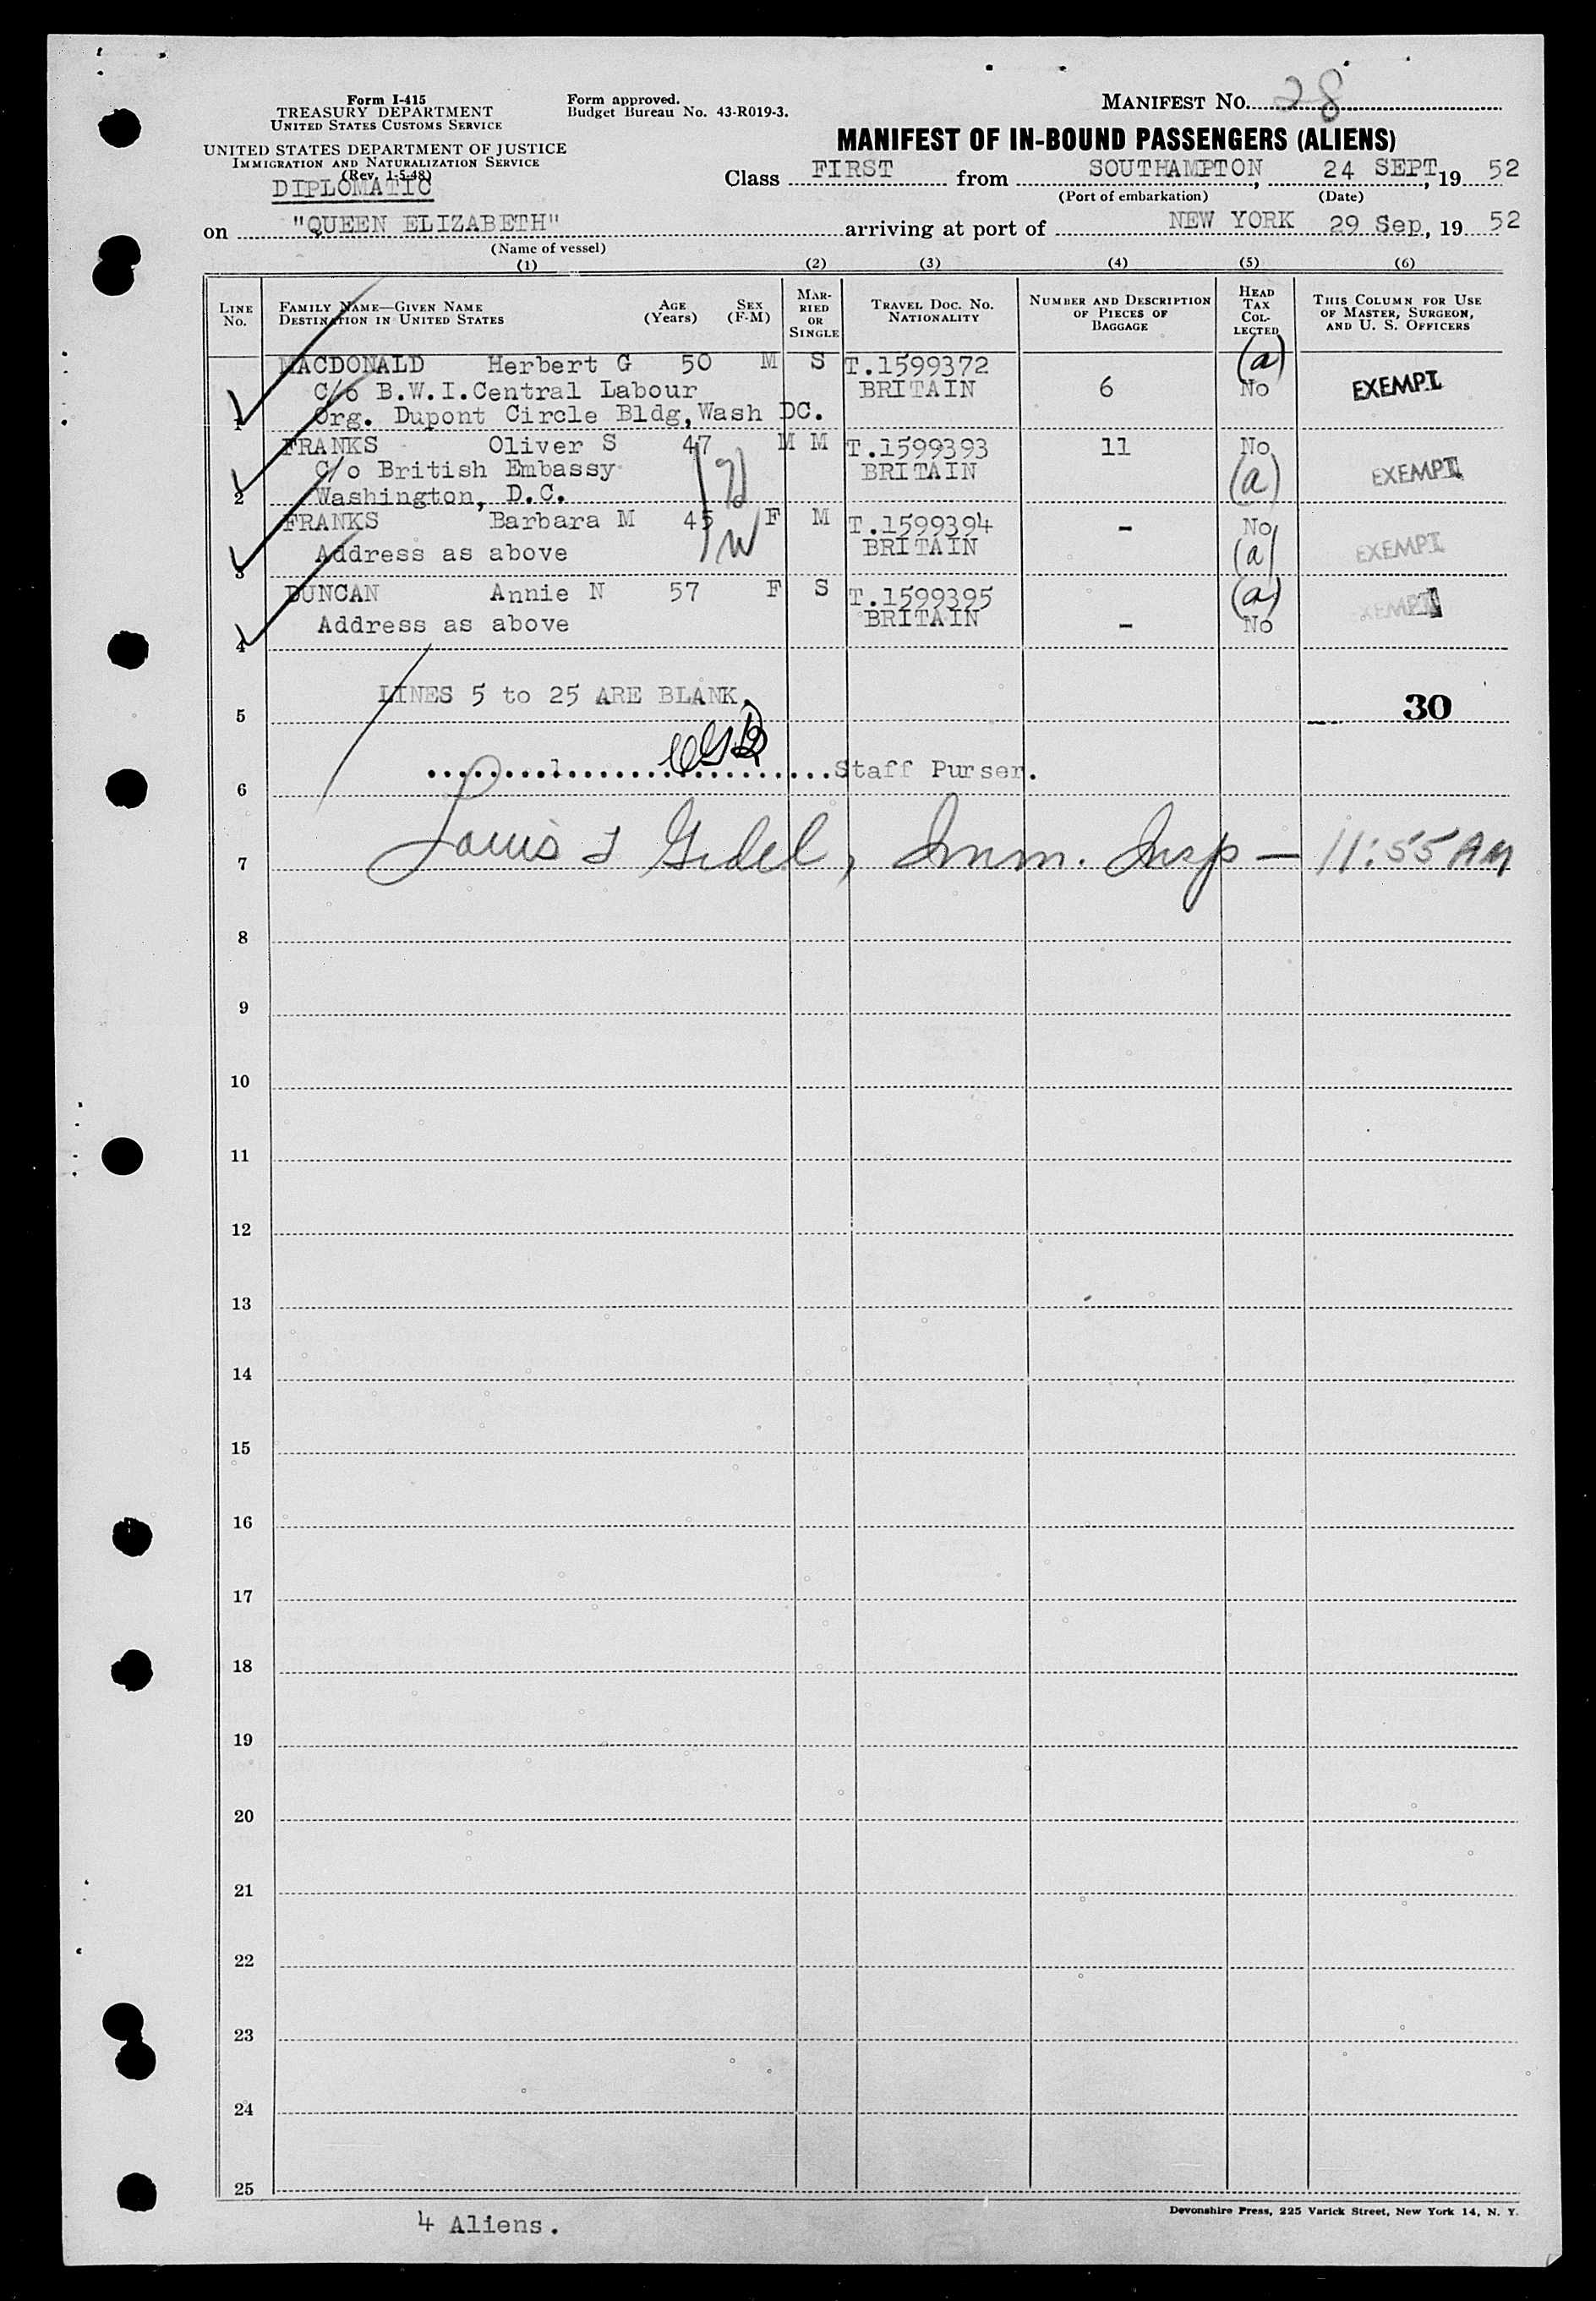 Form I-415
TREASURY DEPARTMENT
UNITED STATES CUSTOMS SERVICE
UNITED STATES DEPARTMENT OF JUSTICE
IMMIGRATION AND NATURALIZATION SERVICE
(Rev. 1-5-48)
DIPLOMATIC
Form approved.
Budget Bureau No. 43-R019-3.
MANIFEST NO. 28
MANIFEST OF IN-BOUND PASSENGERS (ALIENS)
Class FIRST from SOUTHAMPTON, 24 SEPT, 19 52
(Port of embarkation) (Date)
on "QUEEN ELIZABETH" arriving at port of NEW YORK 29 Sep, 19 52
(Name of vessel)
(1) (2) (3) (4) (5) (6)
LINE No. FAMILY NAME—GIVEN NAME DESTINATION IN UNITED STATES AGE (Years) SEX (F-M) MARRIED OR SINGLE TRAVEL DOC. NO. NATIONALITY NUMBER AND DESCRIPTION OF PIECES OF BAGGAGE HEAD TAX COLLECTED THIS COLUMN FOR USE OF MASTER, SURGEON, AND U. S. OFFICERS
MACDONALD Herbert G 50 M S T.1599372 (a)
C/o B.W.I.Central Labour BRITAIN 6 No EXEMPT
1 Org. Dupont Circle Bldg,Wash DC.
FRANKS Oliver S 47 M M T.1599393 11 No
C/o British Embassy BRITAIN (a) EXEMPT
2 Washington, D.C.
FRANKS Barbara M 45 F M T.1599394 - No
3 Address as above BRITAIN (a) EXEMPT
DUNCAN Annie N 57 F S T.1599395 (a) EXEMPT
Address as above BRITAIN - No
4
LINES 5 to 25 ARE BLANK.
5 30
Staff Purser.
6
7 Louis J Gidel, Imm. Insp — 11:55 AM
8
9
10
11
12
13
14
15
16
17
18
19
20
21
22
23
24
25
4 Aliens.
Devonshire Press, 225 Varick Street, New York 14, N. Y.